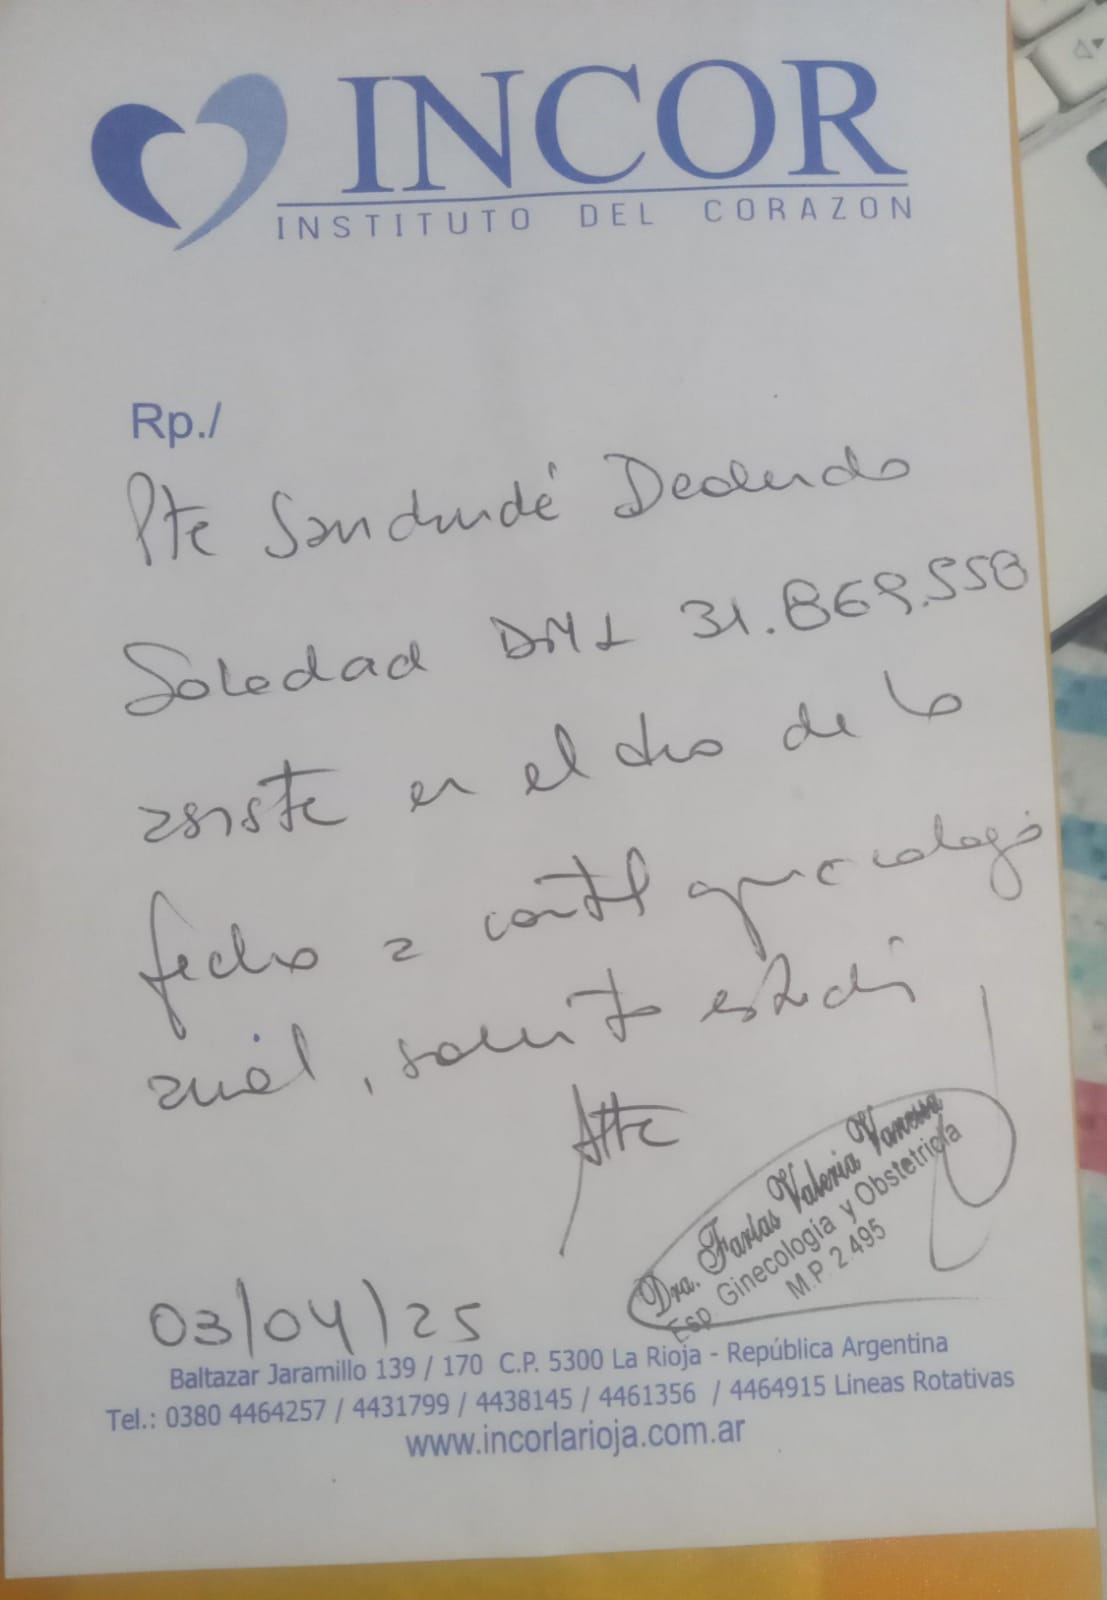 INCOR
INSTITUTO DEL CORAZON
Rp./
Pte
Soledad DNI 31.869.558
asiste en el dia de la
fecha a control ginecologico
anual, solicito estudi
Atte
Dra. Farias Valeria Vanessa
Esp. Ginecologia y Obstetricia
M.P. 2.495
03/04/25
Baltazar Jaramillo 139 / 170 C.P. 5300 La Rioja - República Argentina
Tel.: 0380 4464257 / 4431799 / 4438145 / 4461356 / 4464915 Lineas Rotativas
www.incorlarioja.com.ar